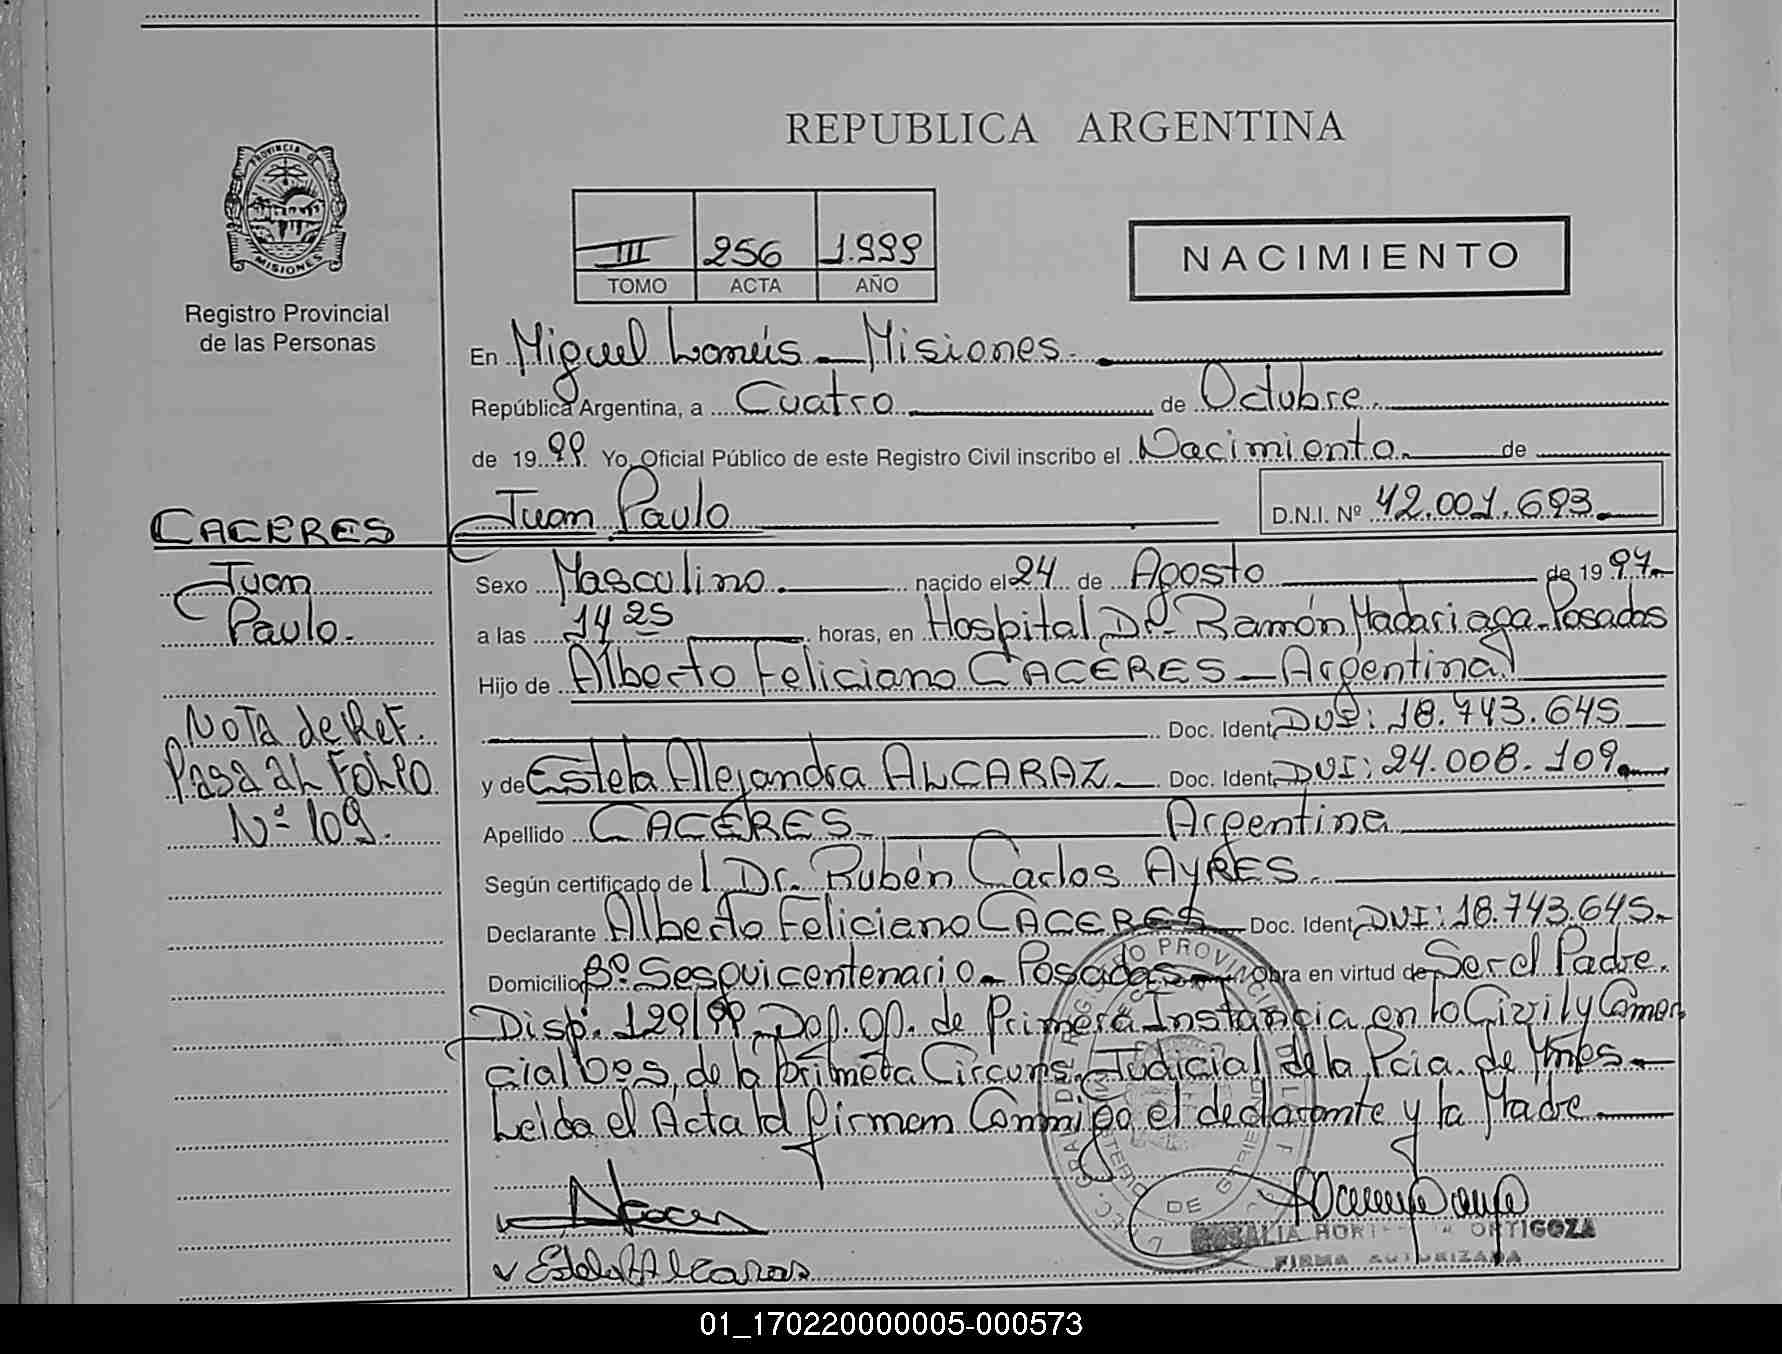 REPUBLICA ARGENTINA
PROVINCIA DE
MISIONES
Registro Provincial
de las Personas
III 256 1.999
TOMO ACTA AÑO
NACIMIENTO
En Miguel Lanús - Misiones.
República Argentina, a Cuatro de Octubre.
de 1999 Yo, Oficial Público de este Registro Civil inscribo el Nacimiento de
Juan Paulo D.N.I. Nº 42.001.693
CACERES
Juan
Paulo.
Nota de Ref.
Pasa al Folio
Nº 109.
Sexo Masculino nacido el 24 de Agosto de 1997
a las 14 25 horas, en Hospital Dr. Ramón Madariaga-Posadas
Hijo de Alberto Feliciano CACERES - Argentina
Doc. Ident. DNI: 18.743.645
y de Estela Alejandra ALCARAZ Doc. Ident. DNI: 24.008.109
Apellido CACERES Argentina
Según certificado de l Dr. Rubén Carlos AYRES.
Declarante Alberto Feliciano CACERES Doc. Ident. DNI: 18.743.645
Domicilio Bº Sesquicentenario - Posadas - Obra en virtud de Ser el Padre.
Disp. 129/99 Def. Of. de Primera Instancia en lo Civil y Comer
cial de la primera Circuns. Judicial de la Pcia. de Mnes
Leida el Acta la firman Conmigo el declarante y la Madre
Estela A Alcaras
ORTIGOZA
FIRMA AUTORIZADA
01_170220000005-000573